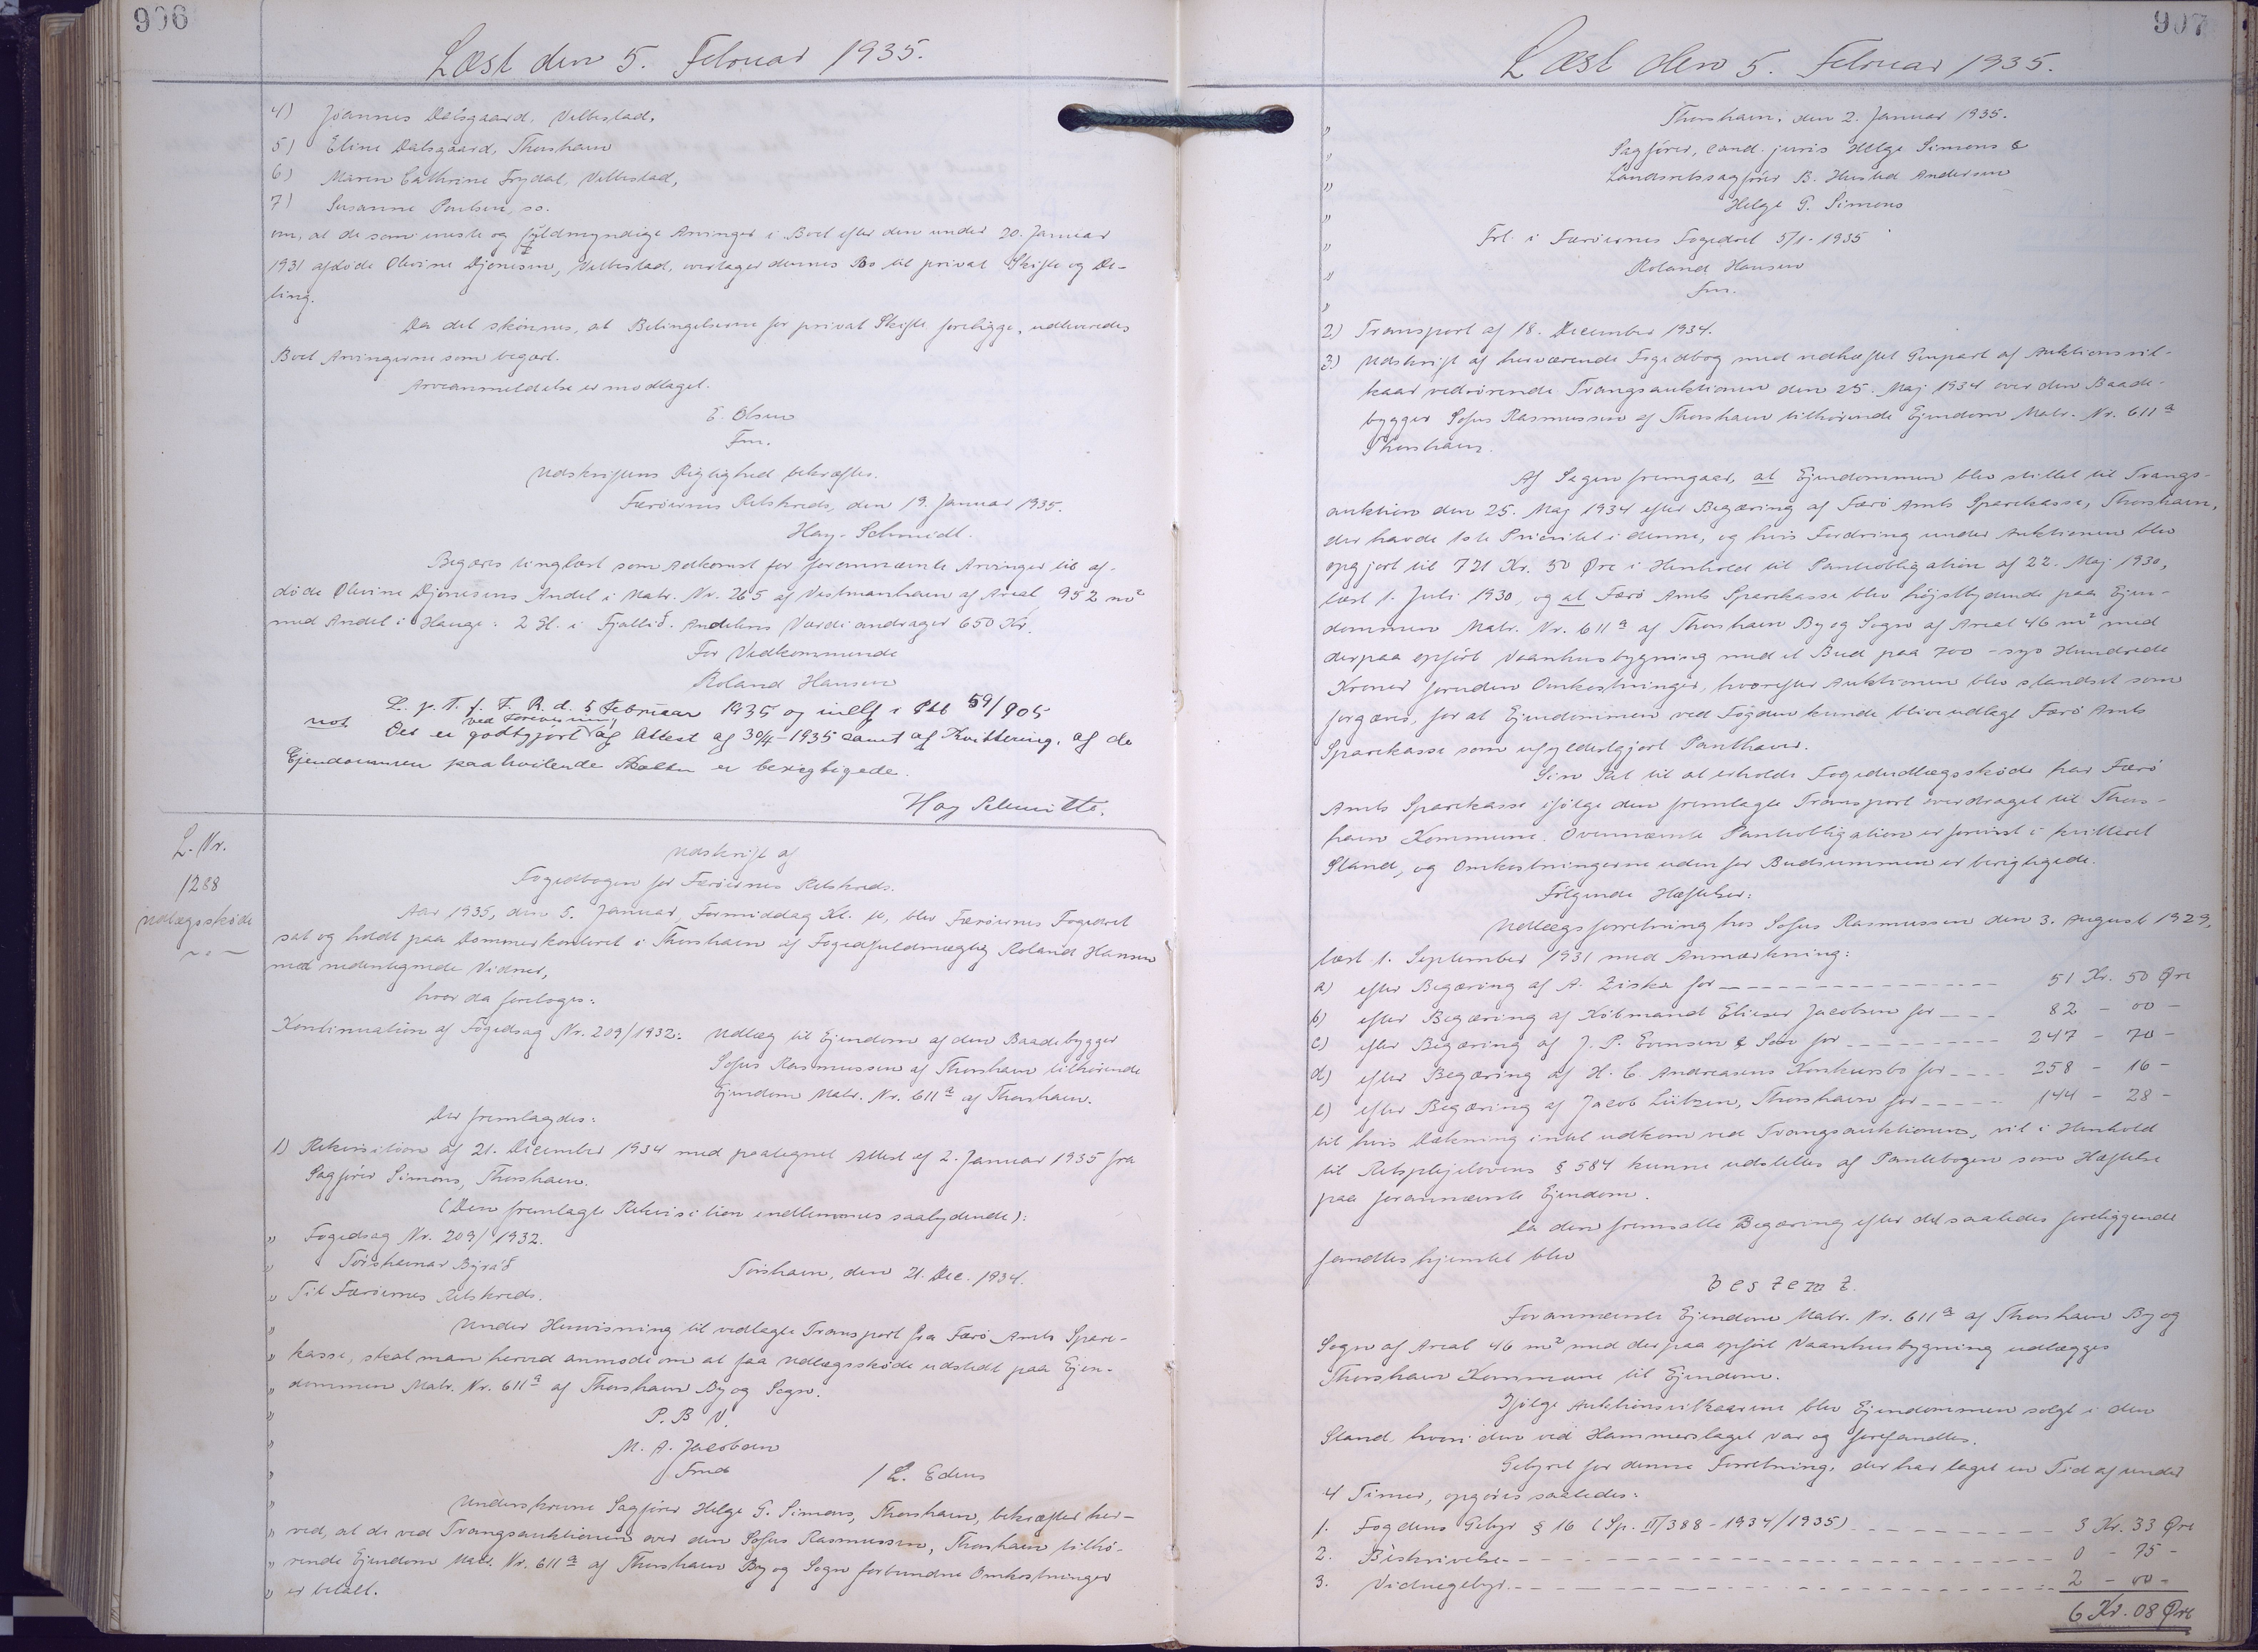 906
Læst den 5. Februar 1935.
4) Joannes Dalsgaard, Velbestad,
5) Eline Dalsgaard, Thorshavn
6) Maren Cathrine Frydal, Velbestad,
7) Susanne Poulsen, so.
om, at de som eneste og fuldmyndige Arvinger i Boet efter den under 20. Januar
1931 afdøde Olevine Djonesen, Velbestad, overtager dennes Bo til privat Skifte og De-
ling.
Da det skønnes, at Betingelserne for privat Skifte foreligge, udleveredes
Boet Arvingerne som begært.
Arveanmeldelse er modtaget.
E. Olsen
Fm.
Udskriftens Rigtighed bekræftes.
Færøernes Retskreds, den 19. Januar 1935.
Hay-Schmidt.
Begæres tinglæst som Adkomst for forannævnte Arvinger til af-
døde Olevine Djonesens Andel i Matr. Nr. 265 af Vestmanhavn af Areal 952 m²
med Andel i Hauge: 2 Sk. i Fjallið. Andelens Værdi andrager 650 Kr.
For Vedkommende
Roland Hansen
L. p. T. f. F. R. d. 5 Februar 1935 og indf i Ptb 59/905
not Det er godtgjort ved Forevisning af Attest af 30/4-1935 samt af Kvittering, at de
Ejendommen paahvilende Skatter er berigtigede.
Hay Schmidt.
L. Nr.
1288
Udlægsskøde
Udskrift af
Fogedbogen for Færøernes Retskreds.
Aar 1935, den 5. Januar, Formiddag Kl. 10, blev Færøernes Fogedret
sat og holdt paa Dommerkontoret i Thorshavn af Fogedfuldmægtig Roland Hansen
med nedentegnede Vidner,
hvor da foretoges:
Kontinuation af Fogedsag Nr. 209/1932: Udlæg til Ejendom af den Baadebygger
Sofus Rasmussen af Thorshavn tilhørende
Ejendom Matr. Nr. 611 a af Thorshavn.
Der fremlagdes:
1) Rekvisition af 21. December 1934 med paategnet Attest af 2. Januar 1935 fra
Sagfører Simons, Thorshavn.
(Den fremlagte Rekvisition indlemmes saalydende):
" Fogedsag Nr. 209/1932.
" Tórshavnar Býráð
Tórshavn, den 21. Dec. 1934.
" Til Færøernes Retskreds.
" Under Henvisning til vedlagte Transport fra Færø Amts Spare-
" kasse, skal man herved anmode om at faa Udlægsskøde udstedt paa Ejen-
" dommen Matr. Nr. 611 a af Thorshavn By og Sogn.
" P. B. V.
" M. A. Jacobsen
" Fmd / L. Edens
" Underskrevne Sagfører Helge G. Simons, Thorshavn, bekræfter her-
" ved, at de ved Tvangsauktionen over den Sofus Rasmussen, Thorshavn tilhø-
" rende Ejendom Matr. Nr. 611 a af Thorshavn By og Sogn forbundne Omkostninger
" er betalt.
907
Læst den 5. Februar 1935.
" Thorshavn, den 2. Januar 1935.
" Sagfører, cand. juris Helge Simons &
" Landsretssagfører B. Husted Andersen
" Helge G. Simons
" Frl. i Færøernes Fogedret 5/1-1935
" Roland Hansen
" Fm.
2) Transport af 18. December 1934.
3) Udskrift af herværende Fogedbog med vedhæftet Genpart af Auktionsvil-
kaar vedrørende Tvangsauktionen den 25. Maj 1934 over den Baade-
bygger Sofus Rasmussen af Thorshavn tilhørende Ejendom Matr. Nr. 611 a
Thorshavn.
Af Sagen fremgaar, at Ejendommen blev stillet til Tvangs-
auktion den 25. Maj 1934 efter Begæring af Færø Amts Sparekasse, Thorshavn,
der havde 1ste Prioritet i denne, og hvis Fordring under Auktionen blev
opgjort til 721 Kr. 50 Øre i Henhold til Panteobligation af 22. Maj 1930,
læst 1. Juli 1930, og at Færø Amts Sparekasse blev højstbydende paa Ejen-
dommen Matr. Nr. 611 a af Thorshavn By og Sogn af Areal 46 m² med
derpaa opført Vaanhusbygning med et Bud paa 700 - syv Hundrede
Kroner foruden Omkostninger, hvorefter Auktionen blev standset som
forgæves, for at Ejendommen ved Fogden kunde blive udlagt Færø Amts
Sparekasse som ufyldestgjort Panthaver.
Sin Ret til at erholde Fogedudlægsskøde har Færø
Amts Sparekasse ifølge den fremlagte Transport overdraget til Thors-
havn Kommune. Ovennævnte Panteobligation er forevist i kvitteret
Stand, og Omkostningerne uden for Budsummen er berigtigede.
Følgende Hæftelser:
Udlægsforretning hos Sofus Rasmussen den 3. August 1929,
læst 1. September 1931 med Anmærkning:
a) efter Begæring af A. Ziska for 51 Kr. 50 Øre
b) efter Begæring af Købmand Elieser Jacobsen for 82 - 00 -
c) efter Begæring af J. P. Evensen & Søn for 247 - 70 -
d) efter Begæring af H. C. Andreasens Konkursbo for 258 - 16 -
e) efter Begæring af Jacob Lützen, Thorshavn for 144 - 28 -
til hvis Dækning intet udkom ved Tvangsauktionen, vil i Henhold
til Retsplejelovens § 584 kunne udslettes af Pantebogen som Hæftelse
paa forannævnte Ejendom.
Da den fremsatte Begæring efter det saaledes foreliggende
fandtes hjemlet blev
bestemt.
Forannævnte Ejendom Matr. Nr. 611 a af Thorshavn By og
Sogn af Areal 46 m² med der paa opført Vaanhusbygning udlægges
Thorshavn Kommune til Ejendom.
Ifølge Auktionsvilkaarene blev Ejendommen solgt i den
Stand, hvori den ved Hammerslaget var og forefandtes.
Gebyret for denne Forretning, der har taget en Tid af under
4 Timer, opgøres saaledes:
1. Fogdens Gebyr § 16 (Sp. III/388-1934/1935) 3 Kr. 33 Øre
2. Beskrivelse 0 - 75 -
3. Vidnegebyr 2 - 00 -
6 Kr. 08 Øre